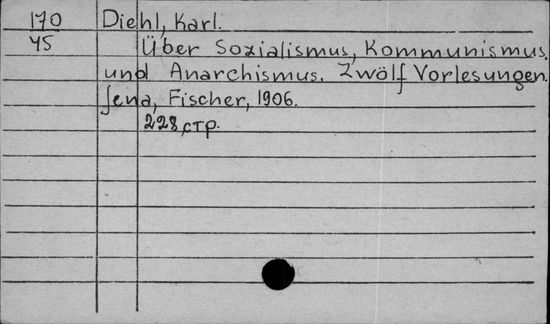 170 Diehl, Karl.
45 Über Sozialismus, Kommunismus,
und Anarchismus. Zwölf Vorlesungen.
Jena, Fischer, 1906.
228, стр.